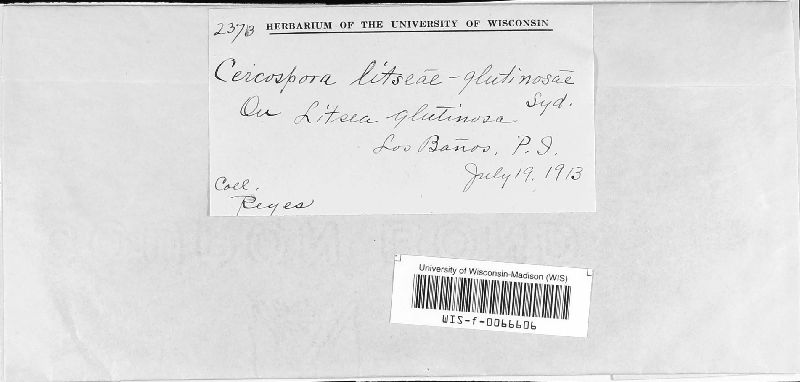 237B HERBARIUM OF THE UNIVERSITY OF WISCONSIN
Cercospora litseae-glutinosae
Syd.
On Litsea glutinosa
Los Baños, P. I.
July 19, 1913
Coll.
Reyes
University of Wisconsin-Madison (WIS)
WIS-f-0066606